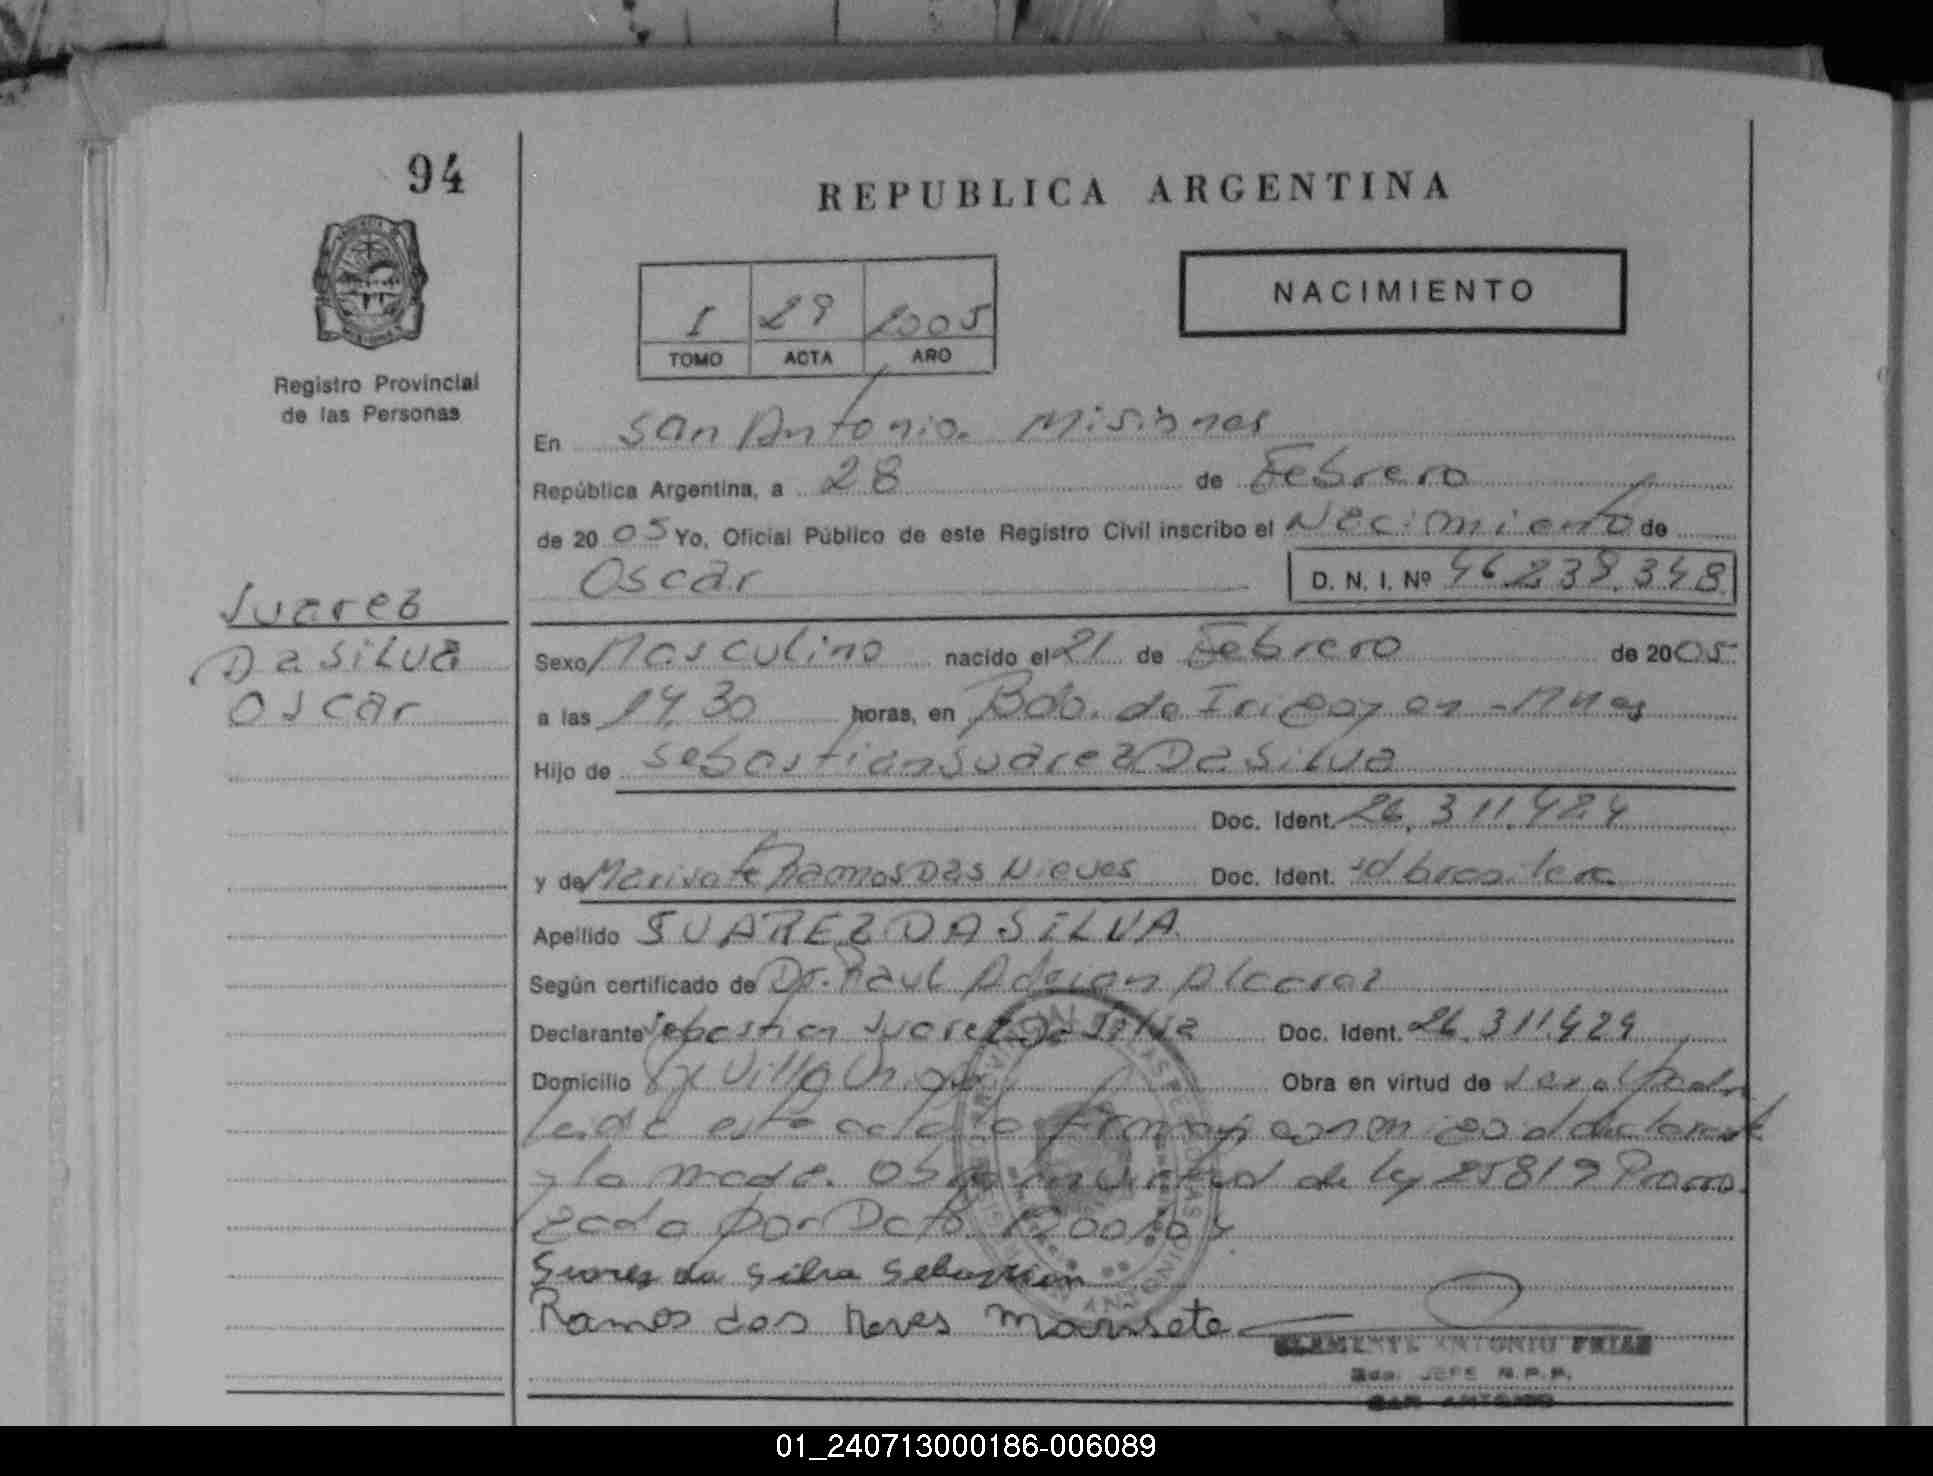 94
REPUBLICA ARGENTINA
I 29 2005
TOMO ACTA AÑO
NACIMIENTO
Registro Provincial
de las Personas
En San Antonio. Misiones
República Argentina, a 28 de Febrero
de 2005 Yo, Oficial Público de este Registro Civil inscribo el Nacimiento de
Oscar D. N. I. Nº 46.239.348
Suarez
Da Silva
Oscar
Sexo Masculino nacido el 21 de Febrero de 2005
a las 14,30 horas, en Bdo. de Irigoyen - Mnes
Hijo de Sebastian Suarez Da Silva
Doc. Ident. 26.311.424
y de Marisete Ramos Das Nieves Doc. Ident. brasilera
Apellido SUAREZ DA SILVA
Según certificado de Dr. Raul Adrian Alcaraz
Declarante Sebastian Suarez Da Silva Doc. Ident. 26.311.424
Domicilio Villa Union Obra en virtud de ser el Padre
Leida este acta la firman conmigo el declarante
y la madre. Obra en virtud de ley 25819 Prorro
gada por Dcto.
Suares da Silva Sebastian
Ramos dos Neves Marisete
CLEMENTE ANTONIO FRIAS
JEFE R.P.P.
SAN ANTONIO
01_240713000186-006089